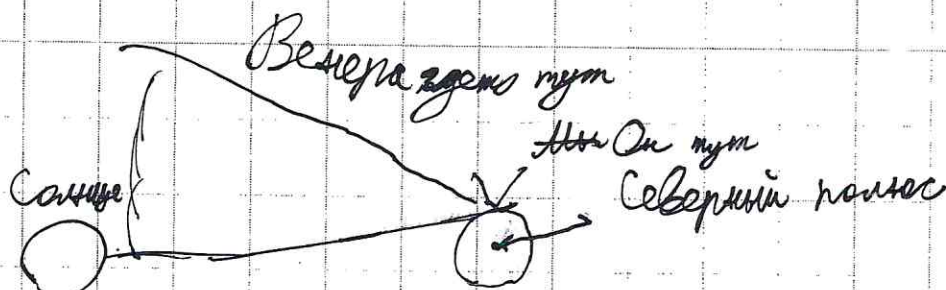 Венера здесь тут
Он тут
Солнце
Северный полюс